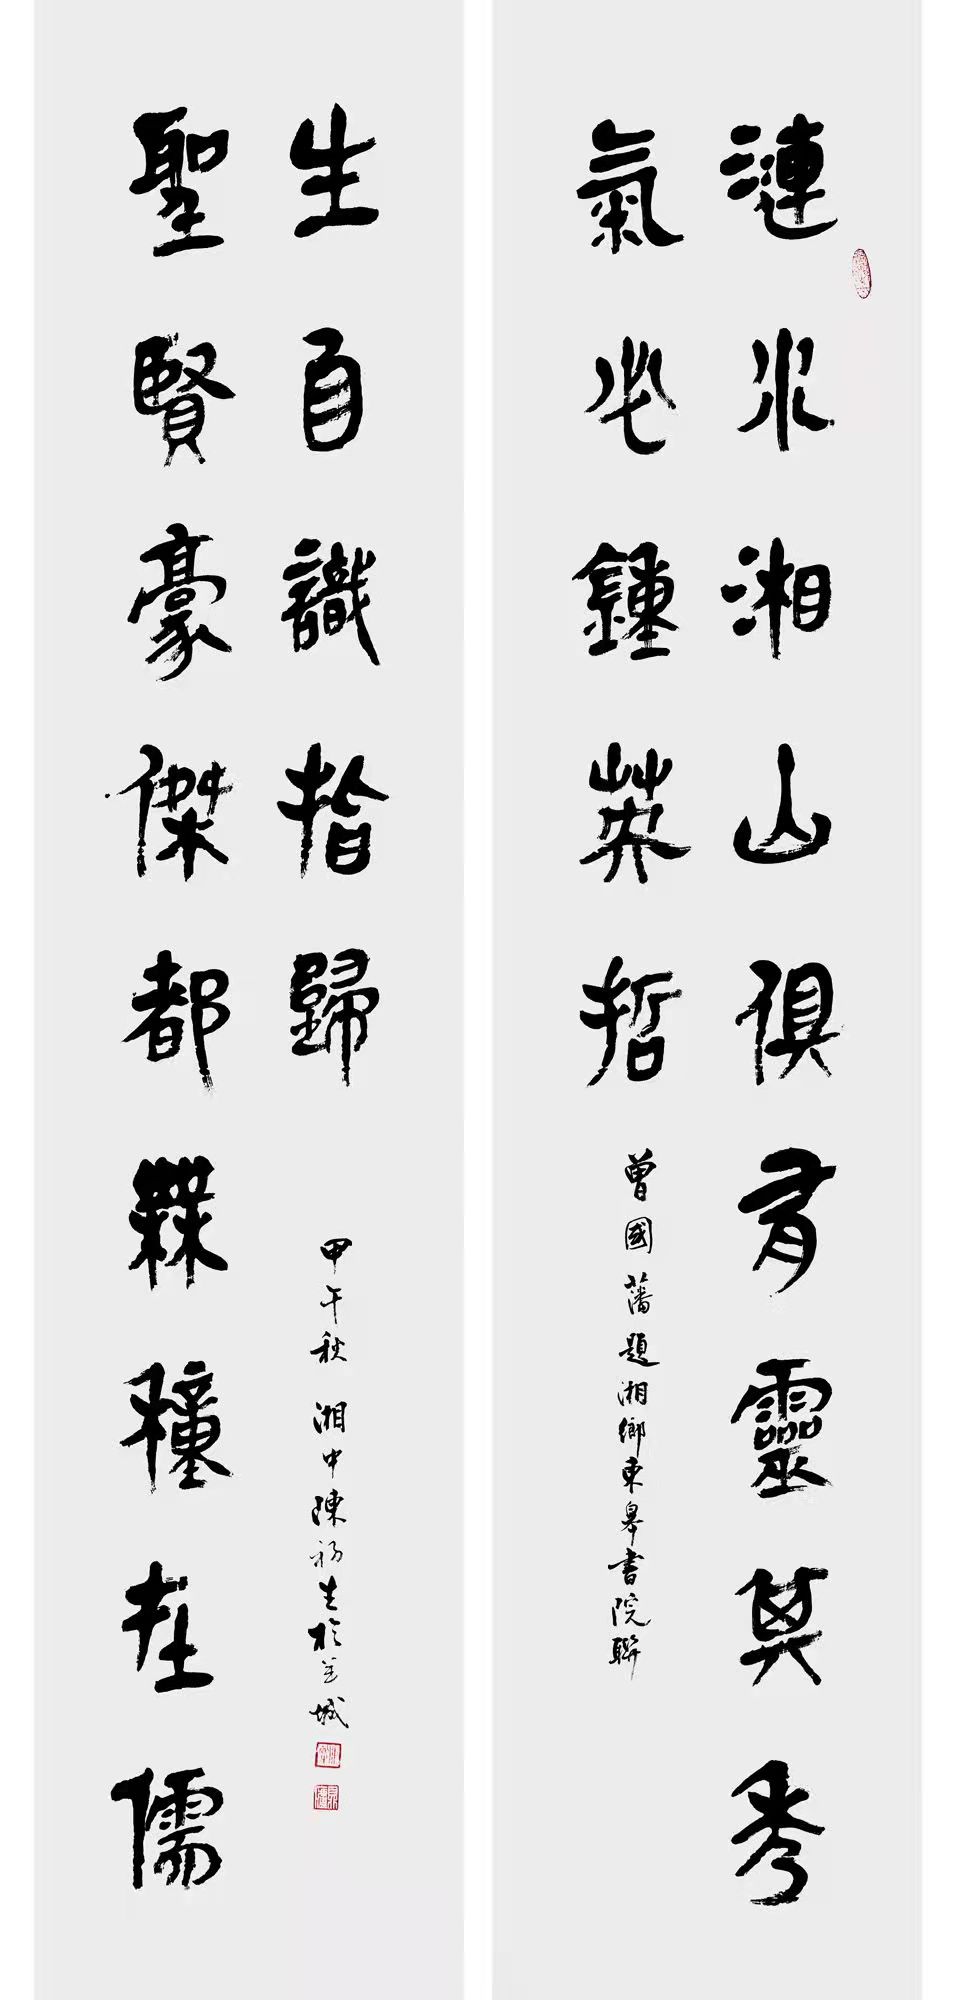 漣水湘山俱有靈其秀
氣必鍾英哲
曾國藩題湘鄉東皋書院聯
聖賢豪傑都無穜在儒
生自識指歸
甲午秋湘中陳初生於羊城